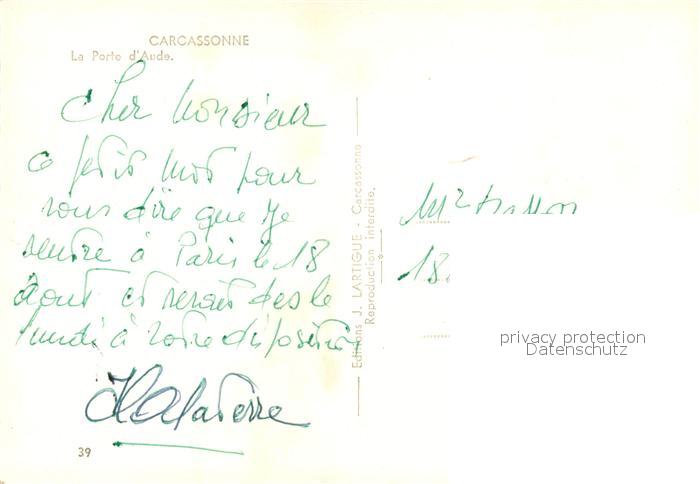 CARCASSONNE
La Porte d'Aude.
Cher Monsieur
ce petit mot pour
vous dire que je
rentre à Paris le 18
Aout et serait des le
lundi à votre disposition
39
Editions J. LARTIGUE - Carcassonne
Reproduction interdite.
18.
privacy protection
Datenschutz